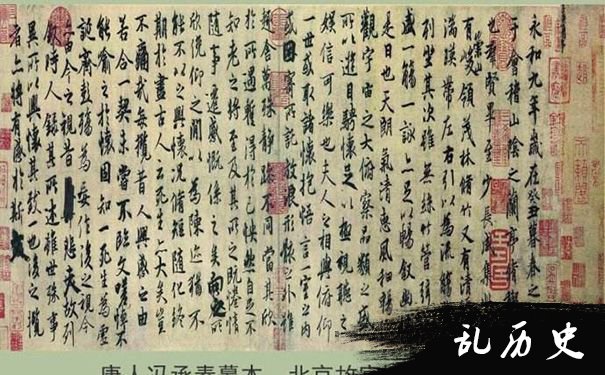 永和九年歲在癸丑暮春之
于會稽山陰之蘭亭脩禊
也羣賢畢至少長咸集
有崇山峻領茂林脩竹又有清
湍暎帶左右引以為流觴
列坐其次雖無絲竹管弦
盛一觴一詠亦足以暢敘幽
是日也天朗氣清惠風和暢
觀宇宙之大俯察品類之盛
所以遊目騁懷足以極視聽之
娛信可樂也夫人之相與俯仰
一世或取諸懷抱悟言一室之內
或因寄所託放浪形骸之外雖
趣舍萬殊靜躁不同當其欣
於所遇蹔得於己怏然自足不
知老之將至及其所之既惓情
隨事遷感慨係之矣向之所
欣俛仰之閒以為陳迹猶不
能不以之興懷況脩短隨化終
期於盡古人云死生亦大矣豈
不痛哉每攬昔人興感之由
若合一契未嘗不臨文嗟悼不
能喻之於懷固知一死生為虛
誕齊彭殤為妄作後之視今
亦由今之視昔悲夫故列
敘時人錄其所述雖世殊事
異所以興懷其致一也後之攬
者亦將有感於斯文
唐人冯承素摹本 北京故宫
乱历史